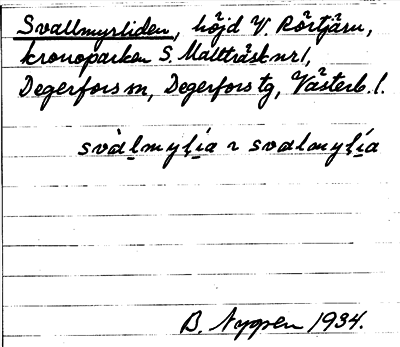 Svallmyrliden, höjd V. Rörtjärn,
kronoparken S. Mallträsk nr 1,
Degerfors sn, Degerfors tg, Västerb. l.
B. Nygren 1934.